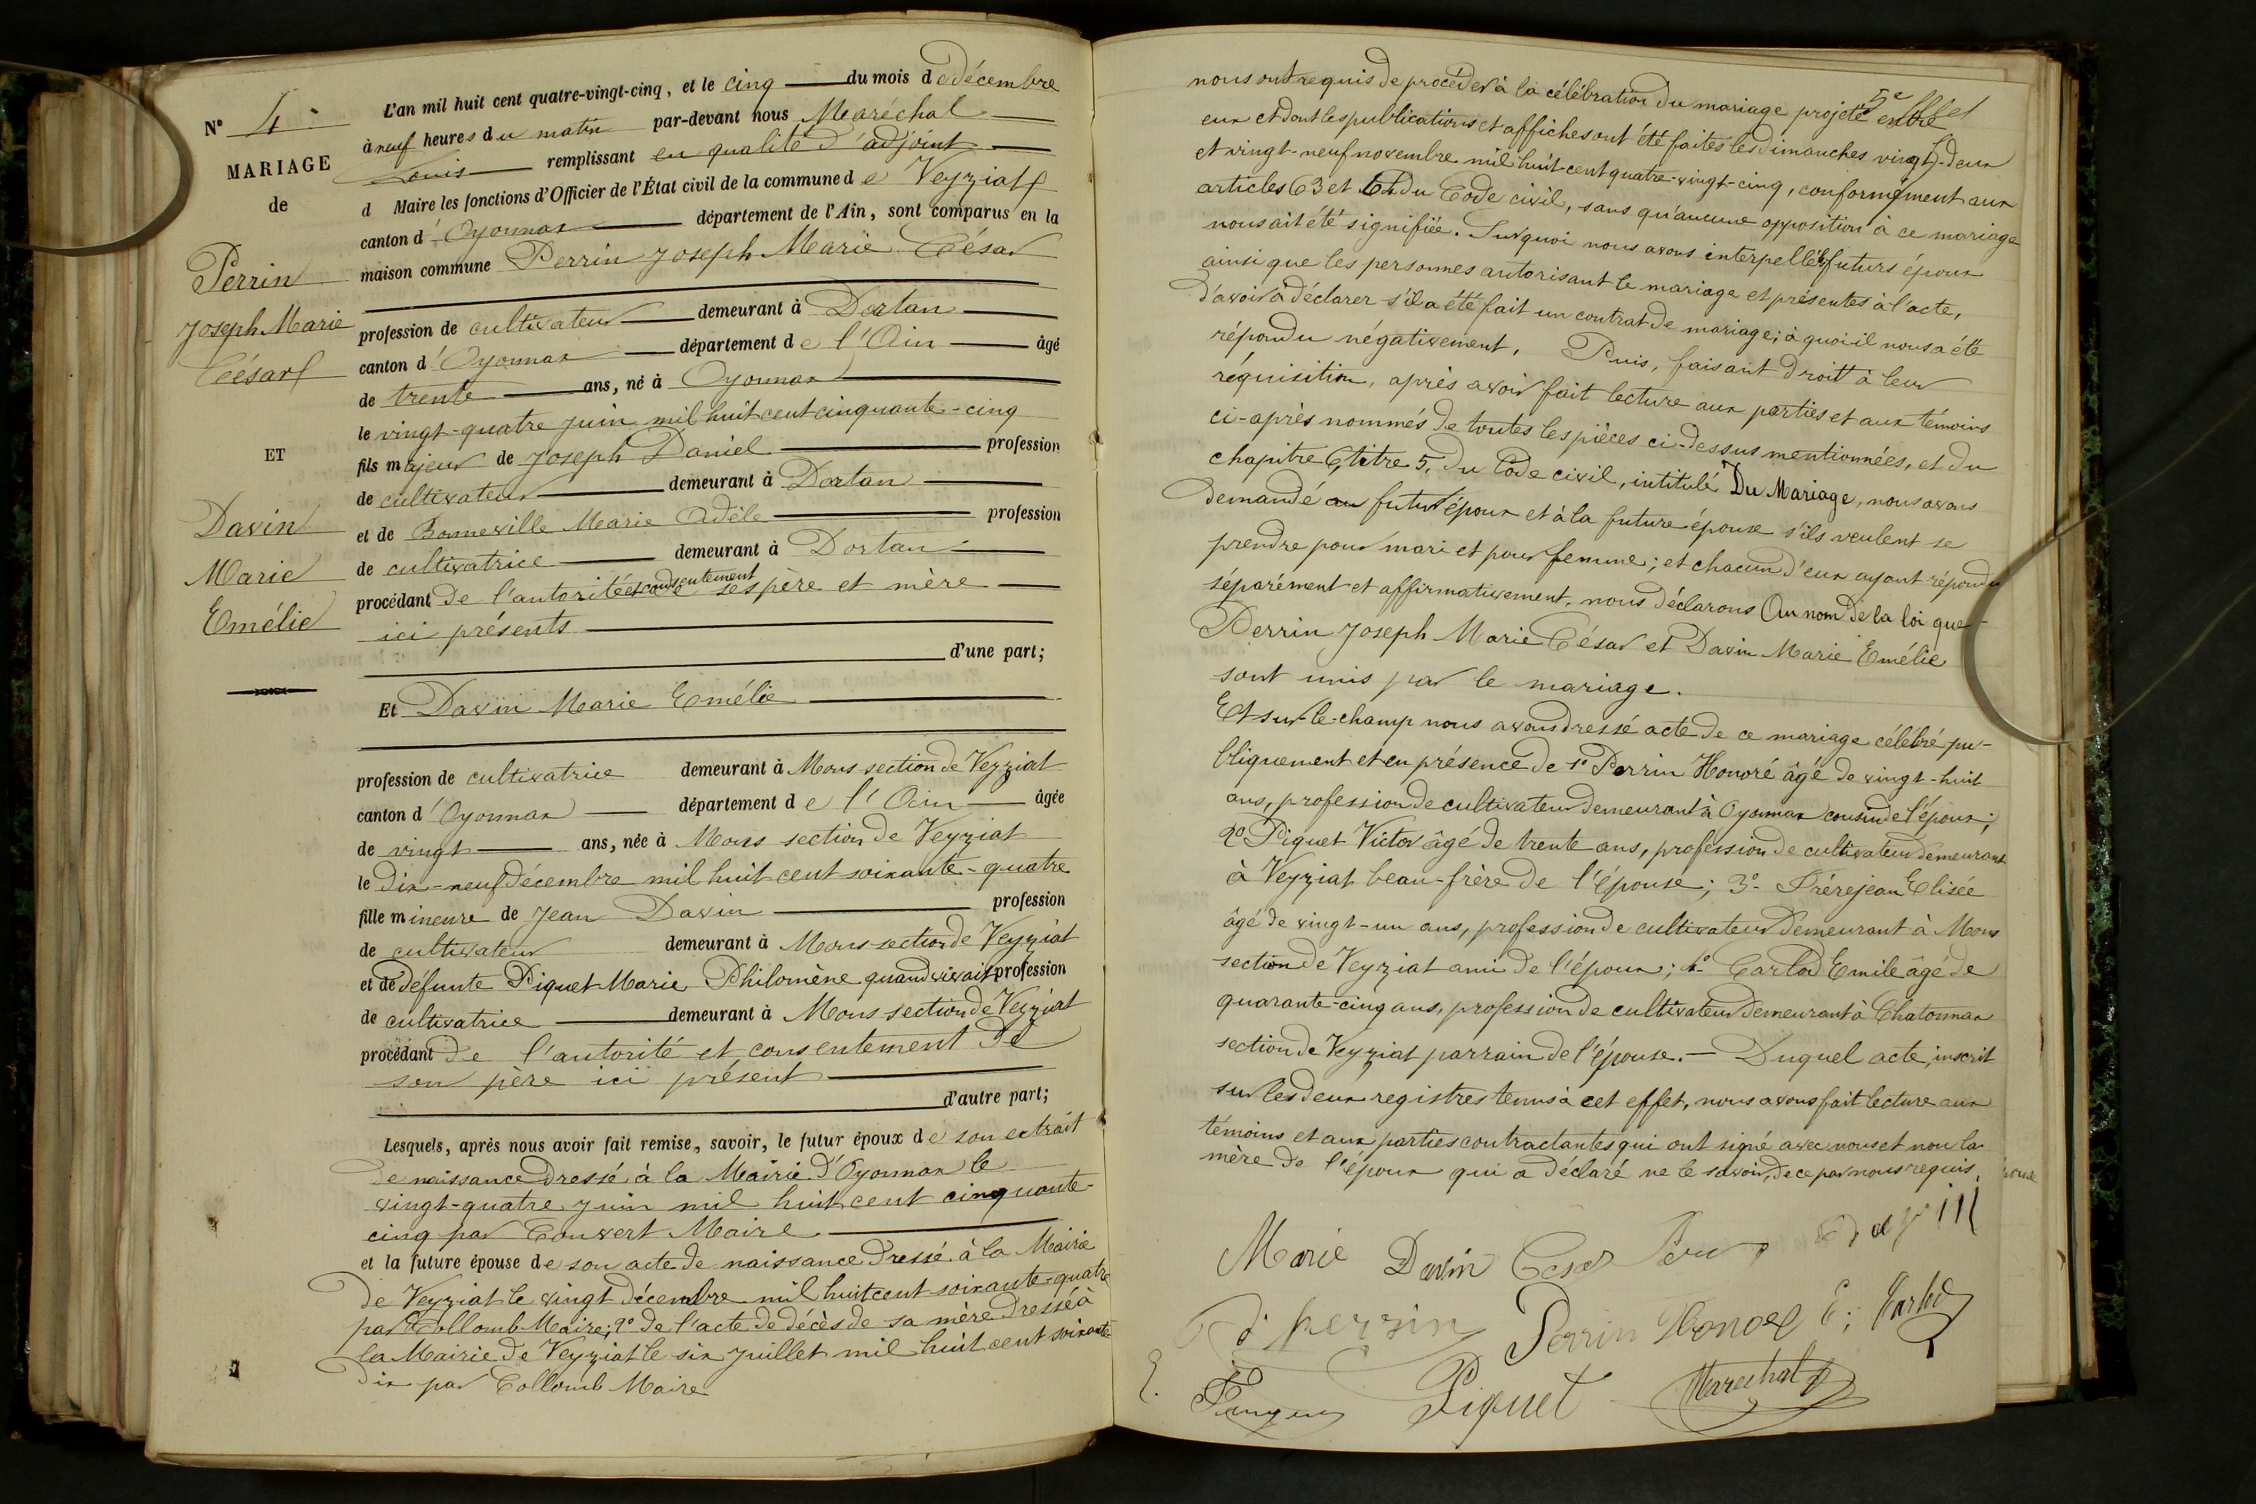 N° 4
MARIAGE
de
Perrin
Joseph Marie
César
ET
Davin
Marie
Emélie
L'an mil huit cent quatre-vingt-cinq, et le cinq du mois de décembre
à neuf heures du matin par-devant nous Maréchal
Louis remplissant en qualité d'adjoint
d Maire les fonctions d'Officier de l'État civil de la commune de Veyziat
canton d'Oyonnax département de l'Ain, sont comparus en la
maison commune Perrin Joseph Marie César
profession de cultivateur demeurant à Dortan
canton d'Oyonnax département de l'Ain âgé
de trente ans, né à Oyonnax
le vingt-quatre juin mil huit cent cinquante-cinq
fils majeur de Joseph Daniel profession
de cultivateur demeurant à Dortan
et de Bonneville Marie Adèle profession
de cultivatrice demeurant à Dortan
procédant de l'autorité et consentement de ses père et mère
ici présents
d'une part;
Et Davin Marie Emélie
profession de cultivatrice demeurant à Mons section de Veyziat
canton d'Oyonnax département de l'Ain âgée
de vingt ans, née à Mons section de Veyziat
le dix-neuf décembre mil huit cent soixante-quatre
fille mineure de Jean Davin profession
de cultivateur demeurant à Mons section de Veyziat
et de défunte Piquet Marie Philomène quand vivait profession
de cultivatrice demeurant à Mons section de Veyziat
procédant de l'autorité et consentement de
son père ici présent
d'autre part;
Lesquels, après nous avoir fait remise, savoir, le futur époux de son extrait
de naissance dressé à la Mairie d'Oyonnax le
vingt-quatre juin mil huit cent cinquante-
cinq par Convert Maire
et la future épouse de son acte de naissance dressé à la Mairie
de Veyziat le vingt décembre mil huit cent soixante-quatre
par Collomb Maire; 2° de l'acte de décès de sa mère dressé à
la Mairie de Veyziat le six juillet mil huit cent soixante
dix par Collomb Maire
5e
nous ont requis de procéder à la célébration du mariage projeté entre
eux et dont les publications et affiches ont été faites les dimanches vingt-deux
et vingt-neuf novembre mil huit-cent quatre-vingt-cinq, conformément aux
articles 63 et 64 du Code civil, sans qu'aucune opposition à ce mariage
nous ait été signifiée. Sur quoi nous avons interpellé les futurs époux
ainsi que les personnes autorisant le mariage et présentes à l'acte,
d'avoir à déclarer s'il a été fait un contrat de mariage; à quoi il nous a été
répondu négativement. Puis, faisant droit à leur
réquisition, après avoir fait lecture aux parties et aux témoins
ci-après nommés de toutes les pièces ci-dessus mentionnées, et du
chapitre 6, titre 5, du Code civil, intitulé Du Mariage, nous avons
demandé au futur époux et à la future épouse s'ils veulent se
prendre pour mari et pour femme; et chacun d'eux ayant répondu
séparément et affirmativement, nous déclarons Au nom de la loi que
Perrin Joseph Marie César et Davin Marie Emélie
sont unis par le mariage.
Et sur-le-champ nous avons dressé acte de ce mariage célébré pu-
bliquement et en présence de 1° Perrin Honoré âgé de vingt-huit
ans, profession de cultivateur demeurant à Oyonnax cousin de l'époux;
2° Piquet Victor âgé de trente ans, profession de cultivateur demeurant
à Veyziat beau-frère de l'épouse; 3° Frèrejean Elisée
âgé de vingt-un ans, profession de cultivateur demeurant à Mons
section de Veyziat ami de l'époux; 4° Carlod Emile âgé de
quarante-cinq ans, profession de cultivateur demeurant à Chatonnax
section de Veyziat parrain de l'épouse. — Duquel acte, inscrit
sur les deux registres tenus à cet effet, nous avons fait lecture aux
témoins et aux parties contractantes qui ont signé avec nous et non la
mère de l'époux qui a déclaré ne le savoir, de ce par nous requis.
Marie Davin César
perrin Perrin Honoré E. Carlod
Piquet Marechal